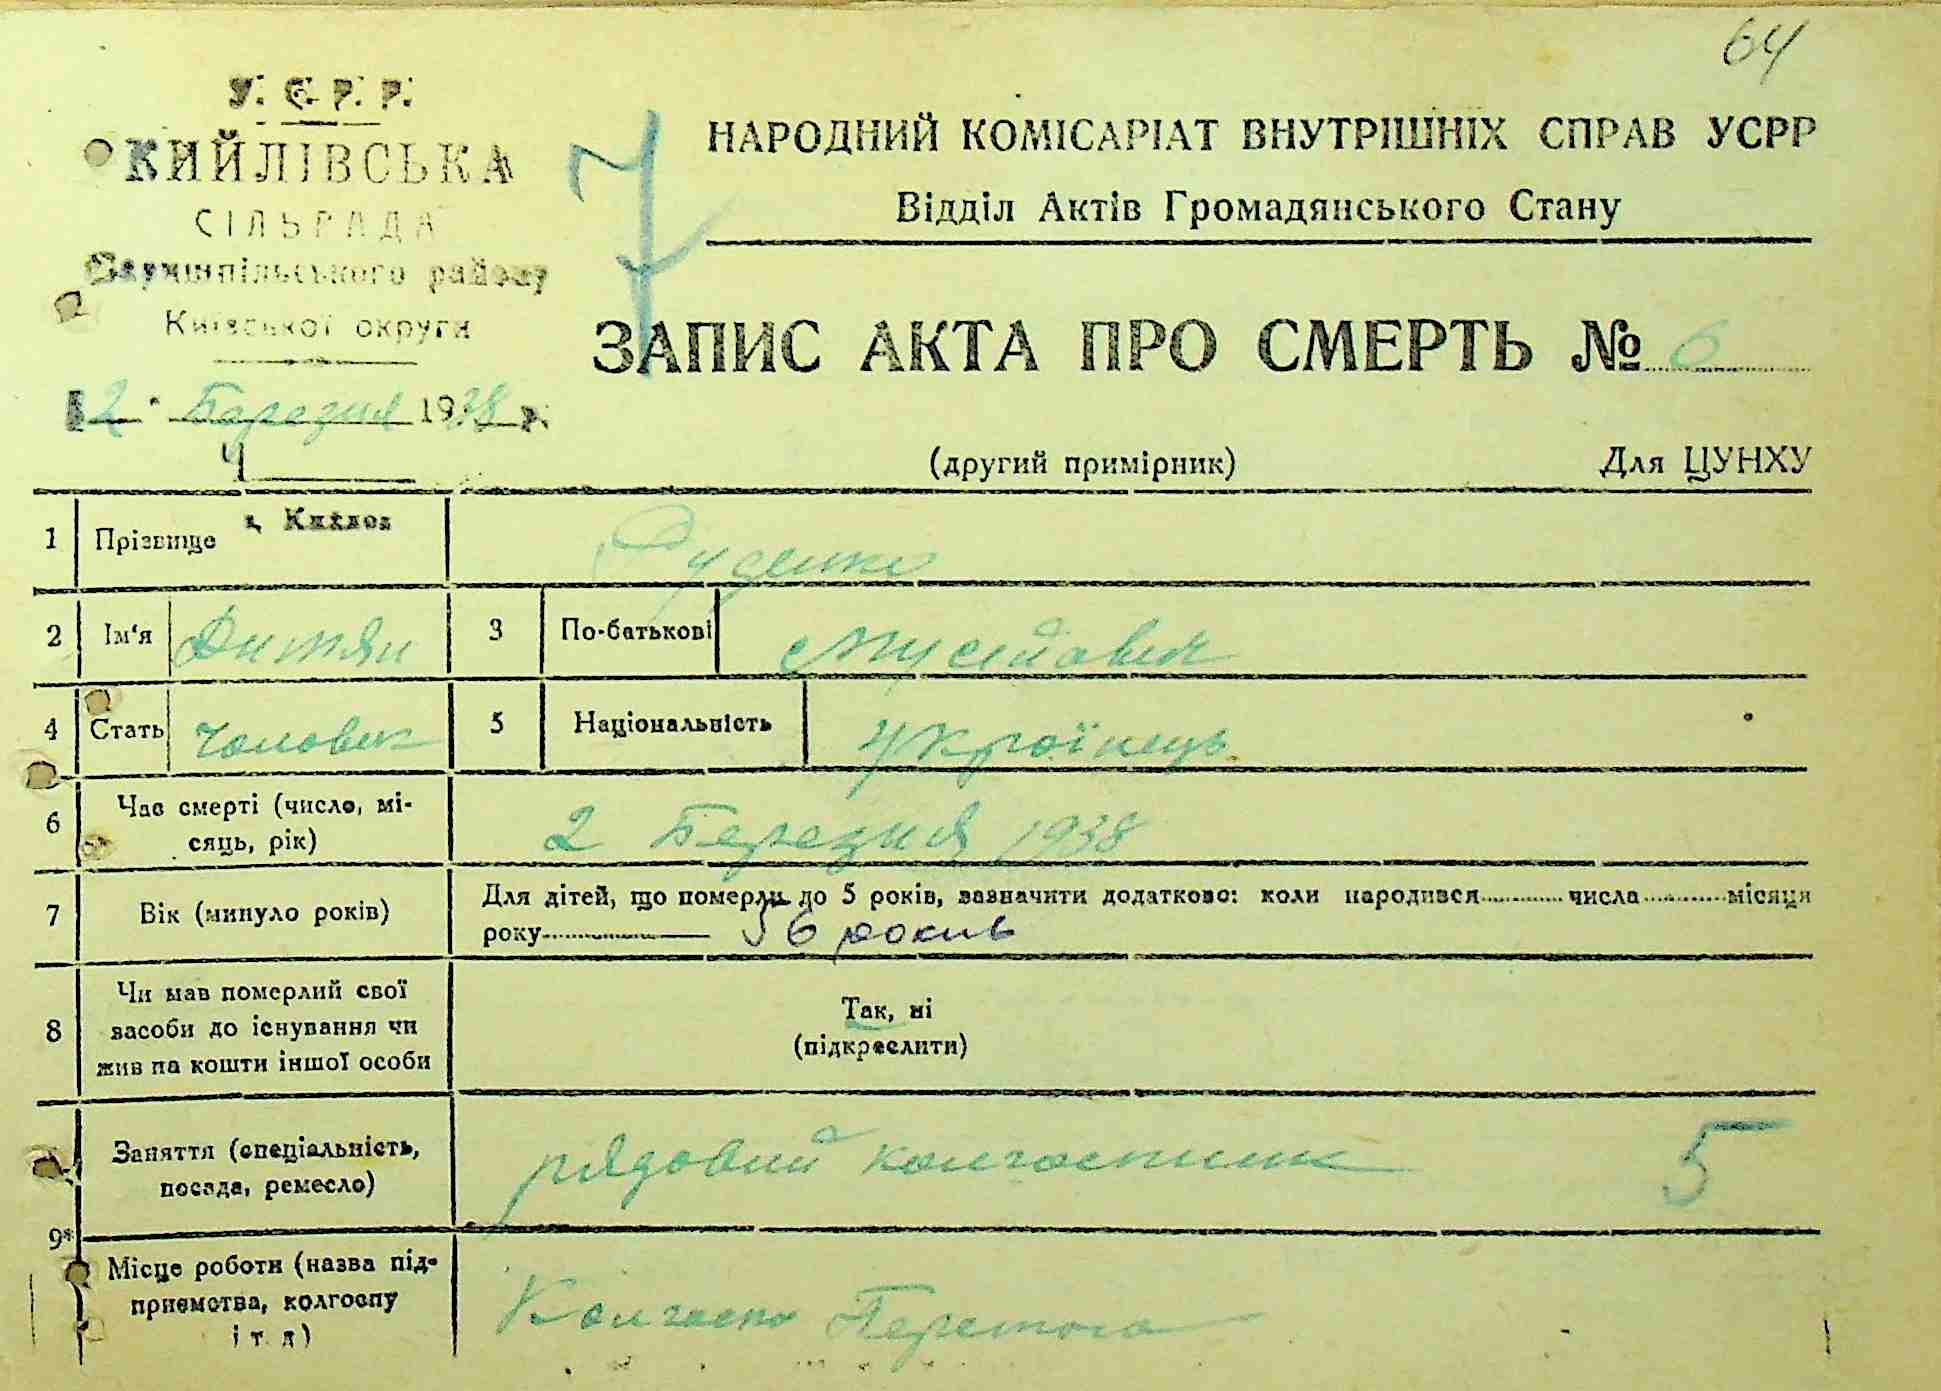 64
У. С. Р. Р.
КИЙЛІВСЬКА
СІЛЬРАДА
району
Київської округи
2 Березня 1938 р.
Ч
7
НАРОДНИЙ КОМІСАРІАТ ВНУТРІШНІХ СПРАВ УСРР
Відділ Актів Громадянського Стану
ЗАПИС АКТА ПРО СМЕРТЬ № 6
(другий примірник) Для ЦУНХУ
1 Прізвище Руденко
2 Ім'я Дитян 3 По-батькові Мусійович
4 Стать чоловік 5 Національність Українець
6 Час смерті (число, мі-
сяць, рік) 2 Березня 1938
7 Вік (минуло років) Для дітей, що померли до 5 років, зазначити додатково: коли народився числа місяця
року 56 років
8 Чи мав померлий свої
засоби до існування чи
жив на кошти іншої особи
Так, ні
(підкреслити)
9* Заняття (спеціальність,
посада, ремесло) рядовий колгоспник 5
Місце роботи (назва під-
приємства, колгоспу
і т. д) Колгосп Перемога